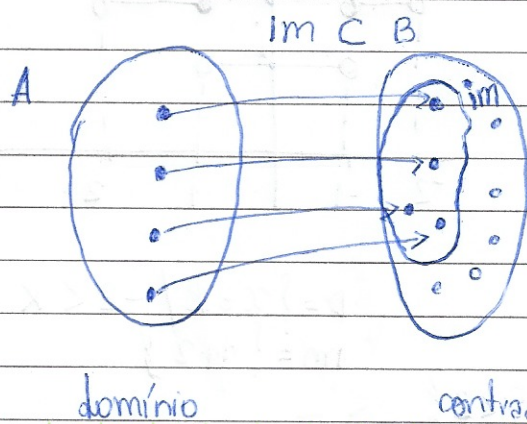 Im ⊂ B
A
im
domínio
contra